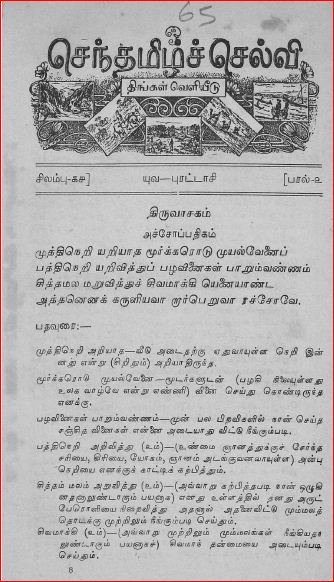 65
செந்தமிழ்ச் செல்வி
திங்கள் வெளியீடு
சிலம்பு-கச]
யுவ—புரட்டாசி
[பரல்-உ
திருவாசகம்
அச்சோப்பதிகம்
முத்திநெறி யறியாத மூர்க்கரொடு முயல்வேனைப்
பத்திநெறி யறிவித்துப் பழவினைகள் பாறும்வண்ணம்
சித்தமல மறுவித்துச் சிவமாக்கி யெனையாண்ட
அத்தனெனக் கருளியவா றார்பெறுவா ரச்சோவே.
பதவுரை:—
முத்திநெறி அறியாத—வீடு அடைதற்கு ஏதுவாயுள்ள நெறி இன்
னது என்று (சிறிதும்) அறியாதிருந்த.
மூர்க்கரொடு முயல்வேனை—மூடர்களுடன் (பழகி நிலையுள்ளது
உலக வாழ்வே என்று எண்ணி) வீண் செய்து கொண்டிருந்த
எனக்கு.
பழவினைகள் பாறும்வண்ணம்—முன் பல பிறவிகளில் நான் செய்த
சஞ்சித வினைகள் என்னை அடையாது விட்டு நீங்கும்படி.
பத்திநெறி அறிவித்து (உம்)—(உண்மை ஞானத்துக்குச் சேர்ந்த
சரியை, கிரியை, யோகம், ஞானம் அடங்குவனவாயுள்ள) அன்பு
நெறியை எனக்குக் காட்டிக் கற்பித்தும்.
சித்தம் மலம் அறுவித்து (உம்)—(அவ்வாறு கற்பித்தபடி நான் ஒழுகி
னதனாலுண்டாகும் பயனாக) எனது உள்ளத்தில் தனது அருட்
பேரொளியை நிறைவித்து அதனால் அதனைவிட்டு மும்மலத்
தொடக்கு முற்றிலும் நீங்கும்படி செய்தும்.
சிவமாக்கி (உம்)—(அவ்வாறு முற்றிலும் மும்மலங்கள் நீங்கியதா
லுண்டாகும் பயனாகச்) சிவமாக் தன்மையை அடையும்படி
செய்தும்.
8